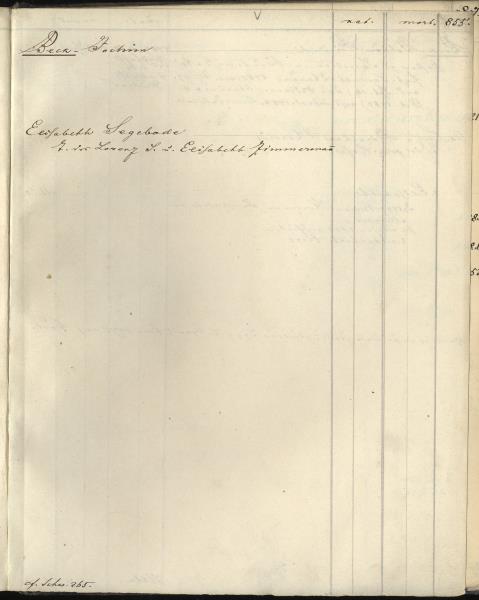 nat. mort. 855.
Beck - Jochim
Elisabeth Segebade
T. des Lorenz S. u. Elisabeth Zimmerman
cf. Schr. 265.